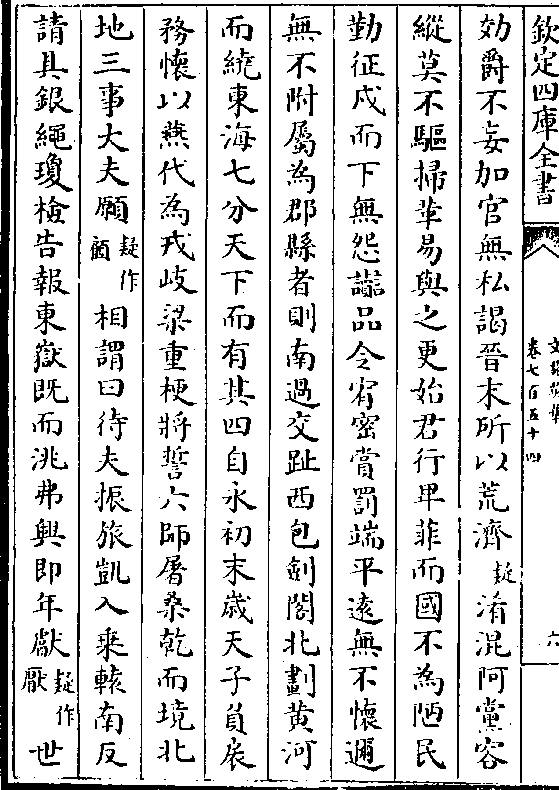 欽定四庫全書
文苑英華
卷七百五十四
六
効爵不妄加官無私謁晉末所以荒濟疑淆混阿黨容
縱莫不驅掃革易與之更始君行卑菲而國不為陋民
勤征戍而下無怨讟品令宥密賞罰端平遠無不懷邇
無不附屬為郡縣者則南過交趾西包劍閣北劃黄河
而繞東海七分天下而有其四自永初末歲天子負扆
務懷以燕代為戎岐梁重梗將誓六師屠桑乾而境北
地三事大夫願疑作顧相謂曰待夫振旅凱入乘轅南反
請具銀繩瓊檢告報東嶽既而洮弗興即年獻疑作厭世